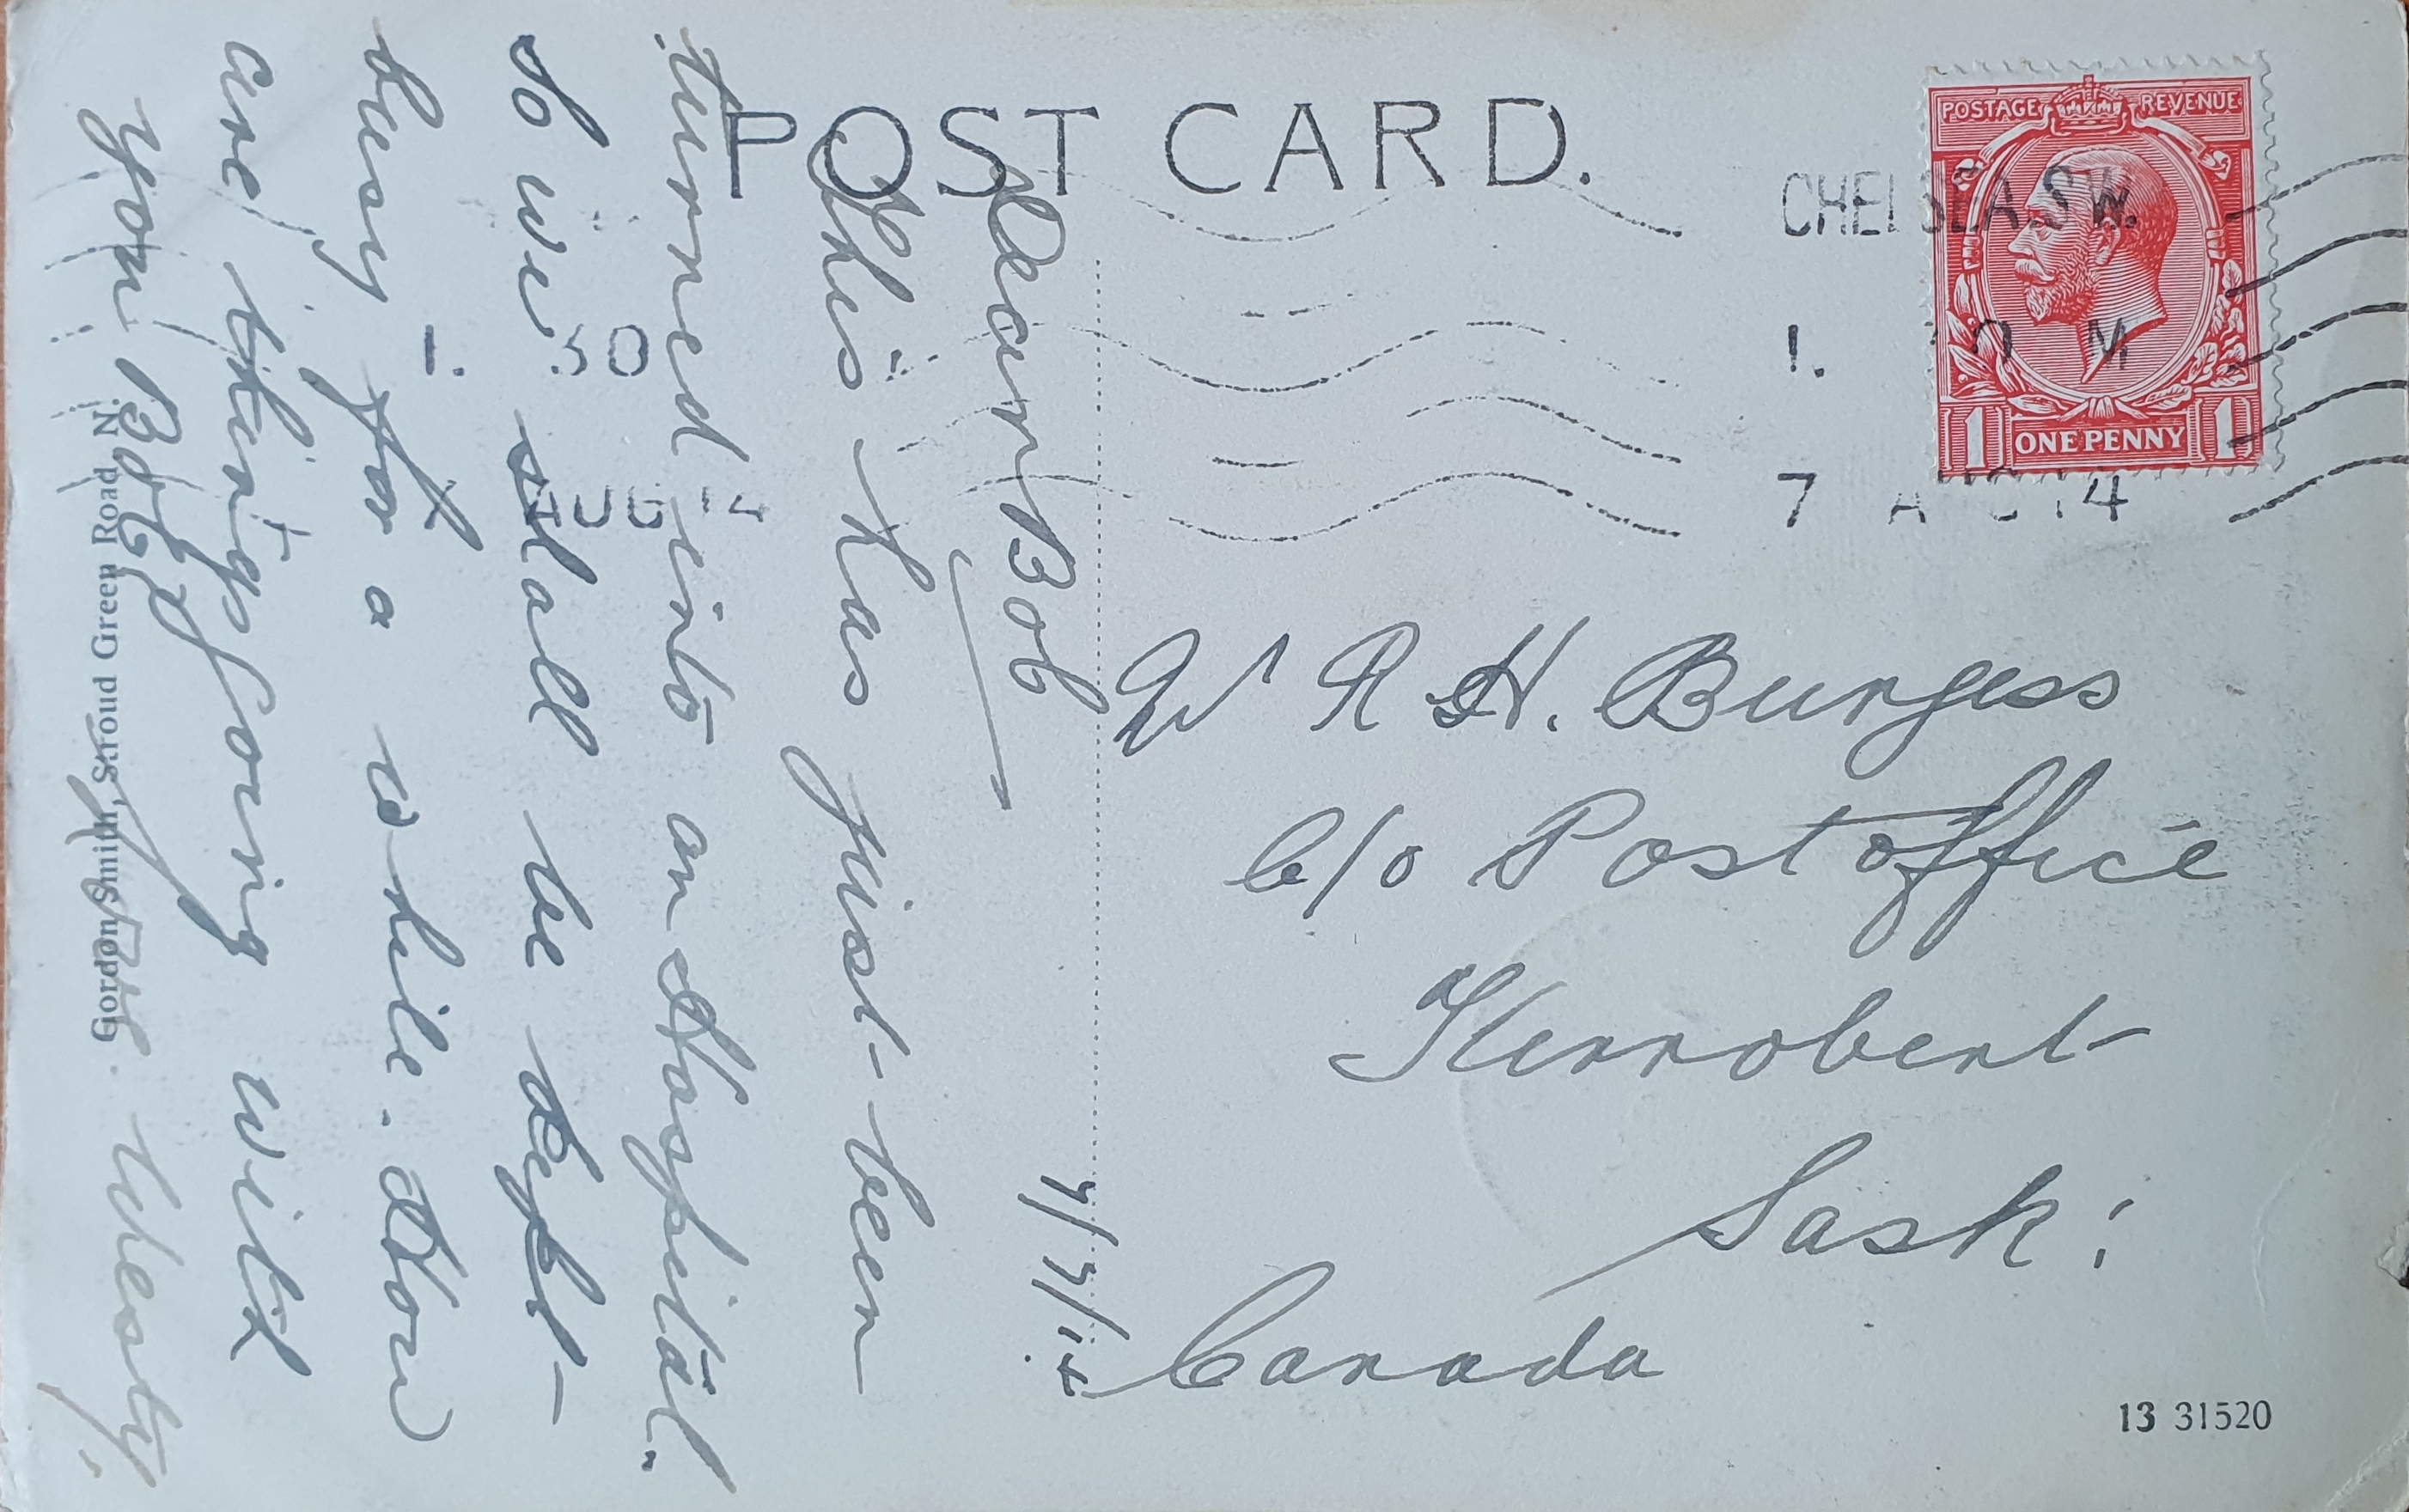 POST CARD.
POSTAGE REVENUE
ONE PENNY
1 1
CHELSEA.S.W.
7 AUG 14
AUG 14
Dear Bob
7/7/14
This has just been
turned into an Hospital.
So we shall be kept
busy for a while. How
are things going with
you Bob Westy.
W R H. Burgess
C/o Post office
Kerrobert
Sask:
Canada
Gordon Smith, Stroud Green Road N.
13 31520